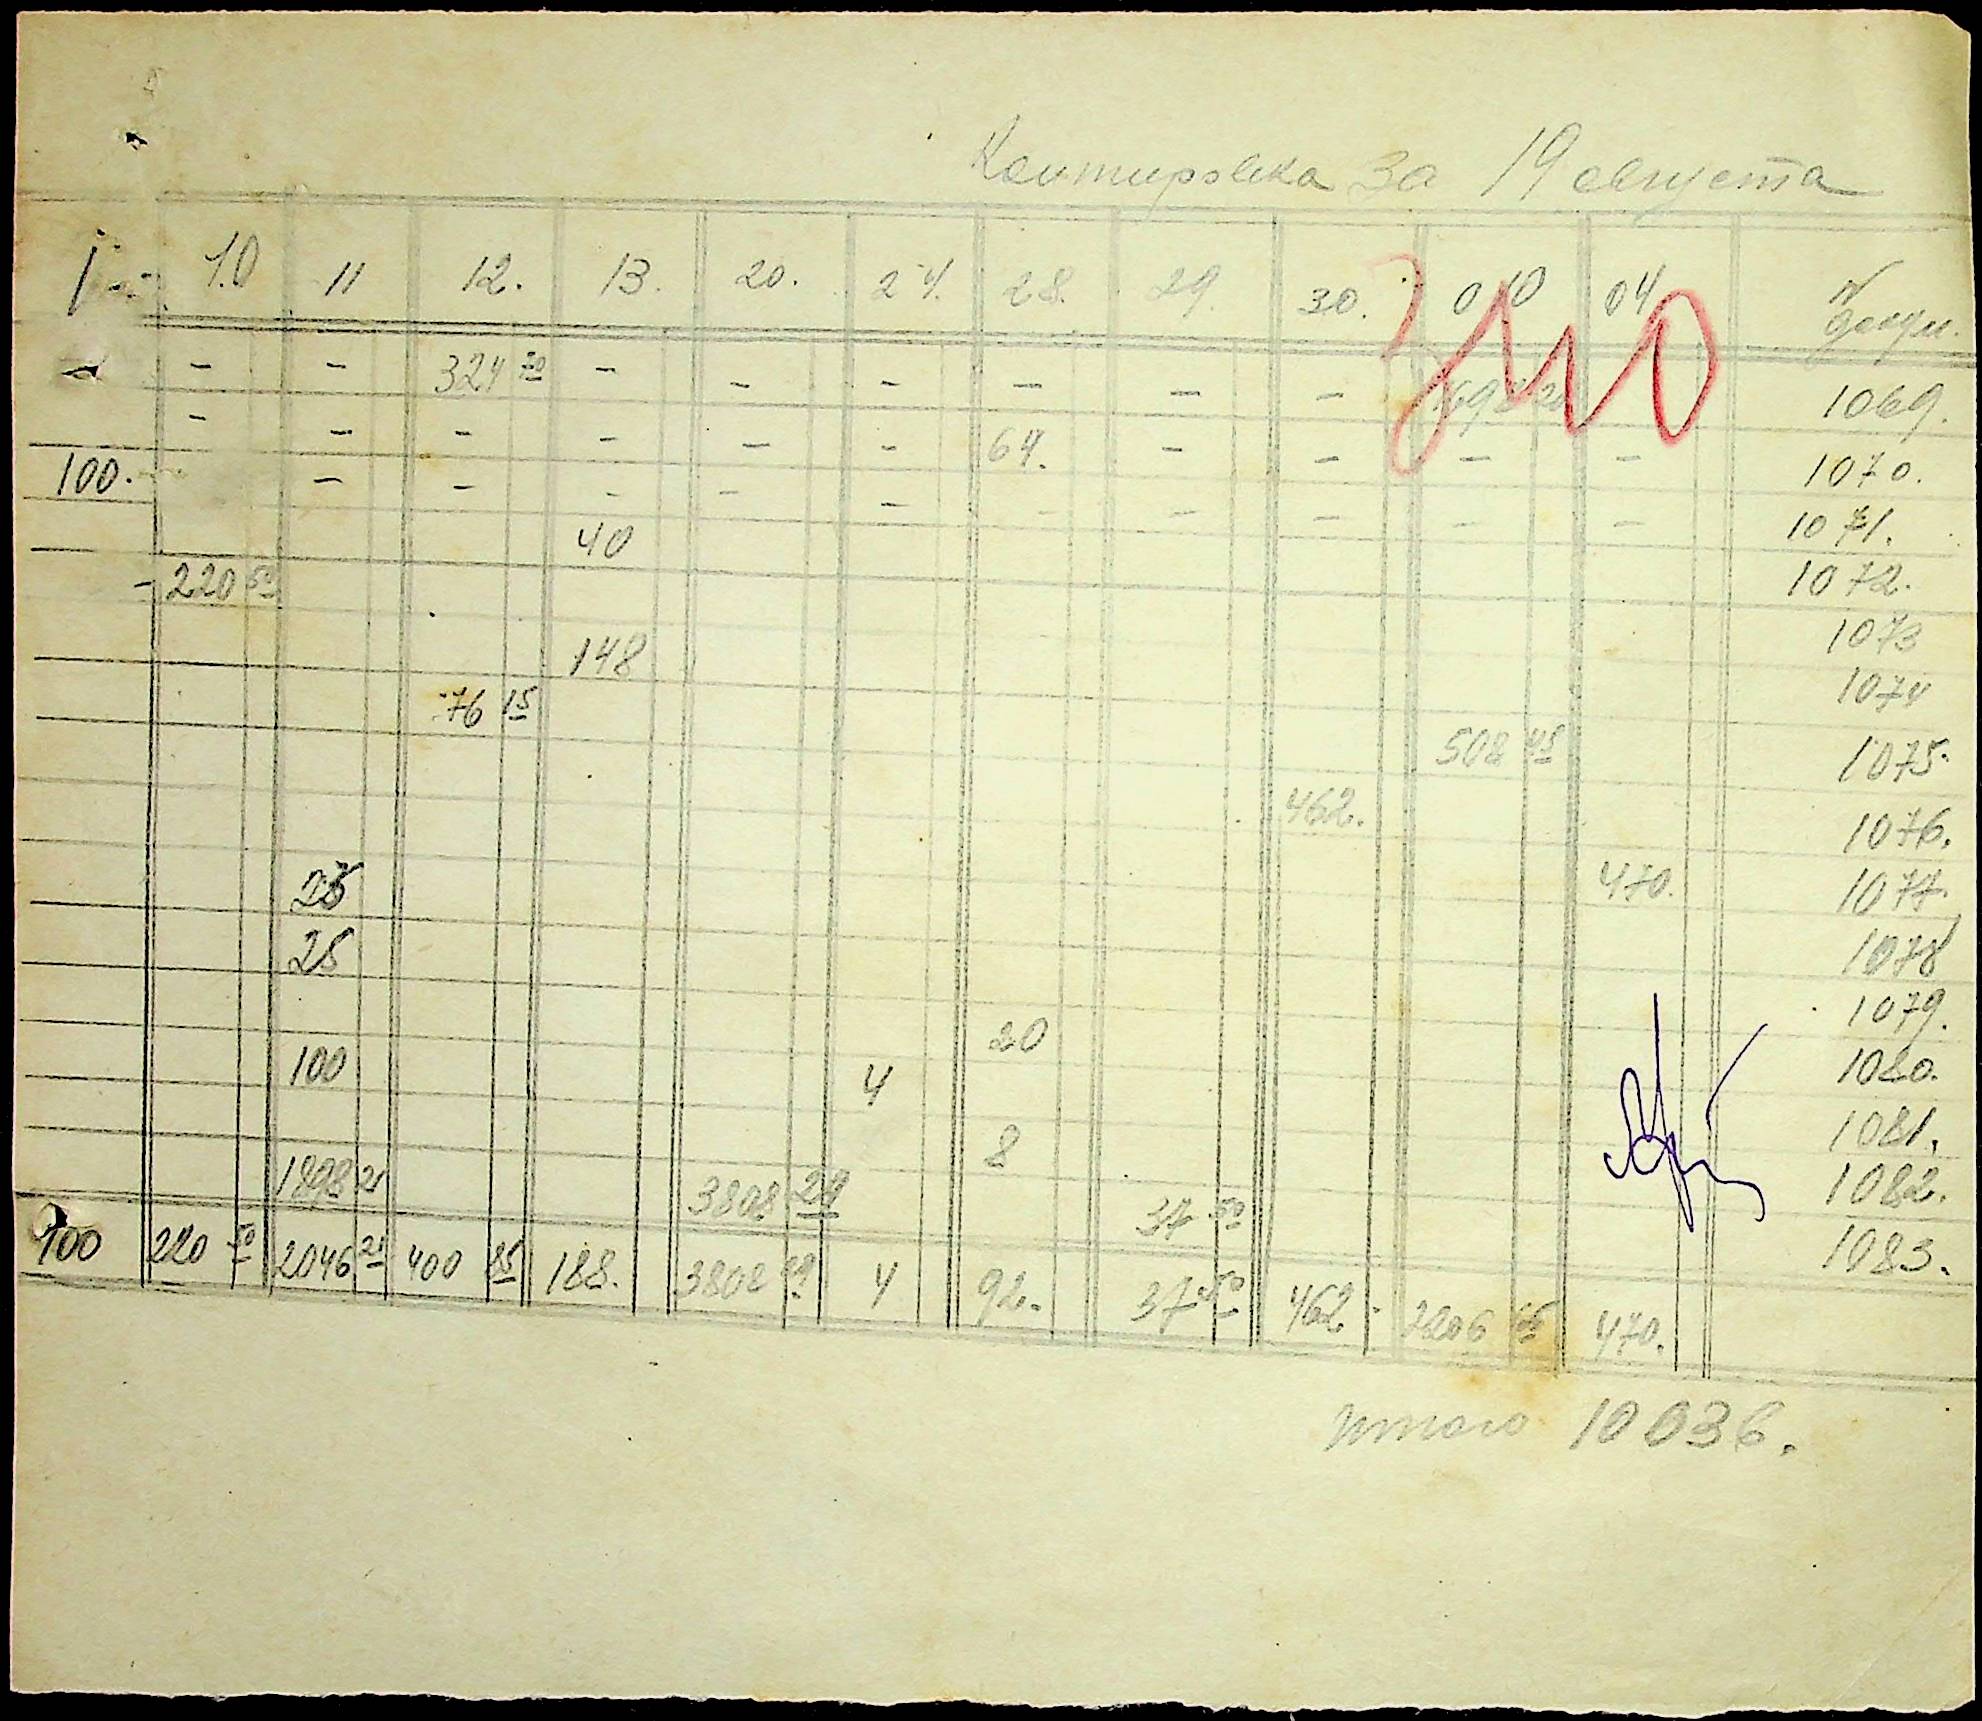 Контировка за 19 августа
1 10 11 12. 13. 20. 24. 28. 29. 30. 010 04 N докум.
310
- - - 324 70 - - - - - - 1069.
- - - - - - 64. - - - - 1070.
100. - - - - - - - - - - 1071.
40 1072.
-220 50 1073
148 1074
76 15 1075.
508 45 1076.
462. 1077.
25 470. 1078
25 1079.
20 1080.
100 4 1081.
8 1082.
1898 21 3808 29 37 50 1083.
100 220 50 2046 21 400 85 188. 3808 29 4 92. 37 50 462 - 2206 65 470.
Итого 10036.